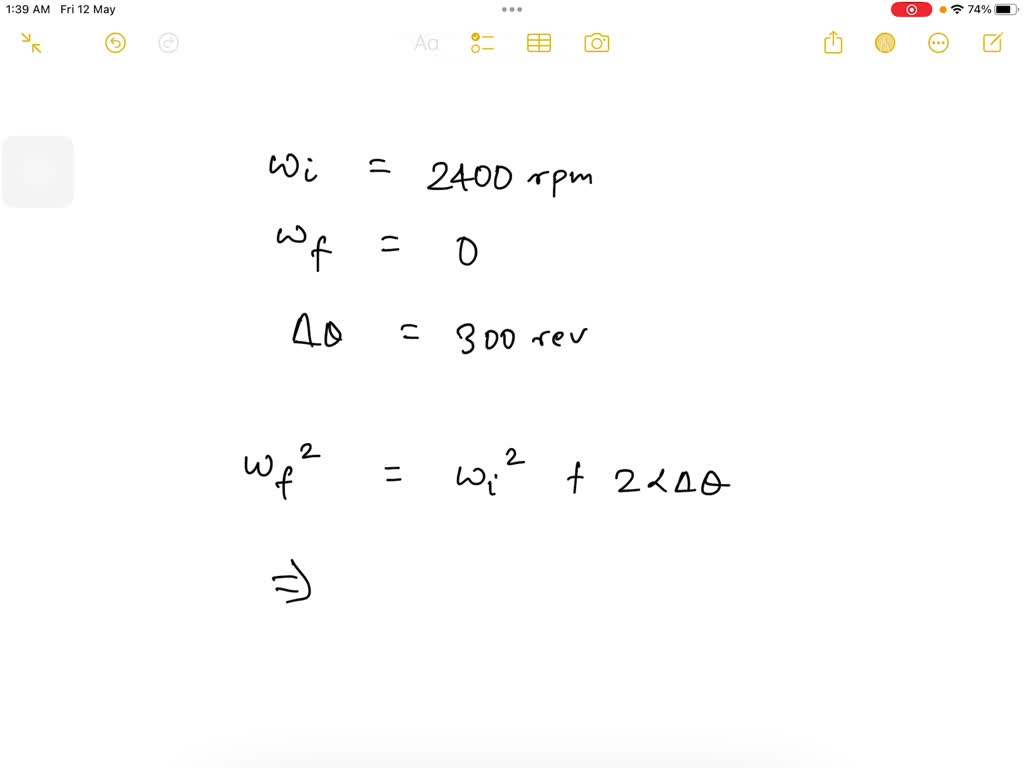 1:39 AM Fri 12 May
74%
Aa
ωi = 2400 rpm
ωf = 0
Δθ = 300 rev
ωf² = ωi² + 2αΔθ
⇒